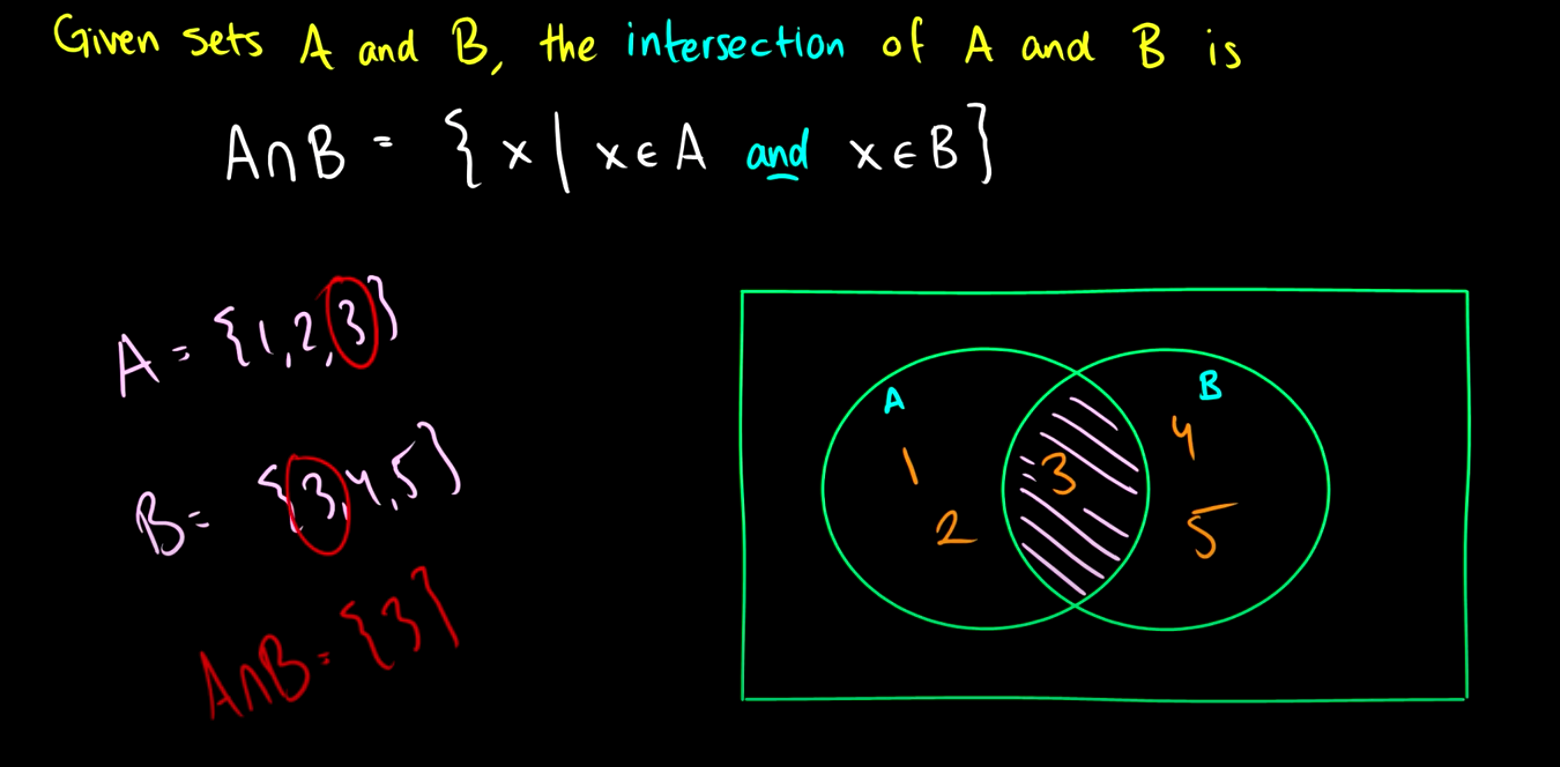 Given sets A and B, the intersection of A and B is
A∩B = {x | x∈A and x∈B}
A = {1,2,3}
B = {3,4,5}
A∩B = {3}
A
B
1
2
3
4
5